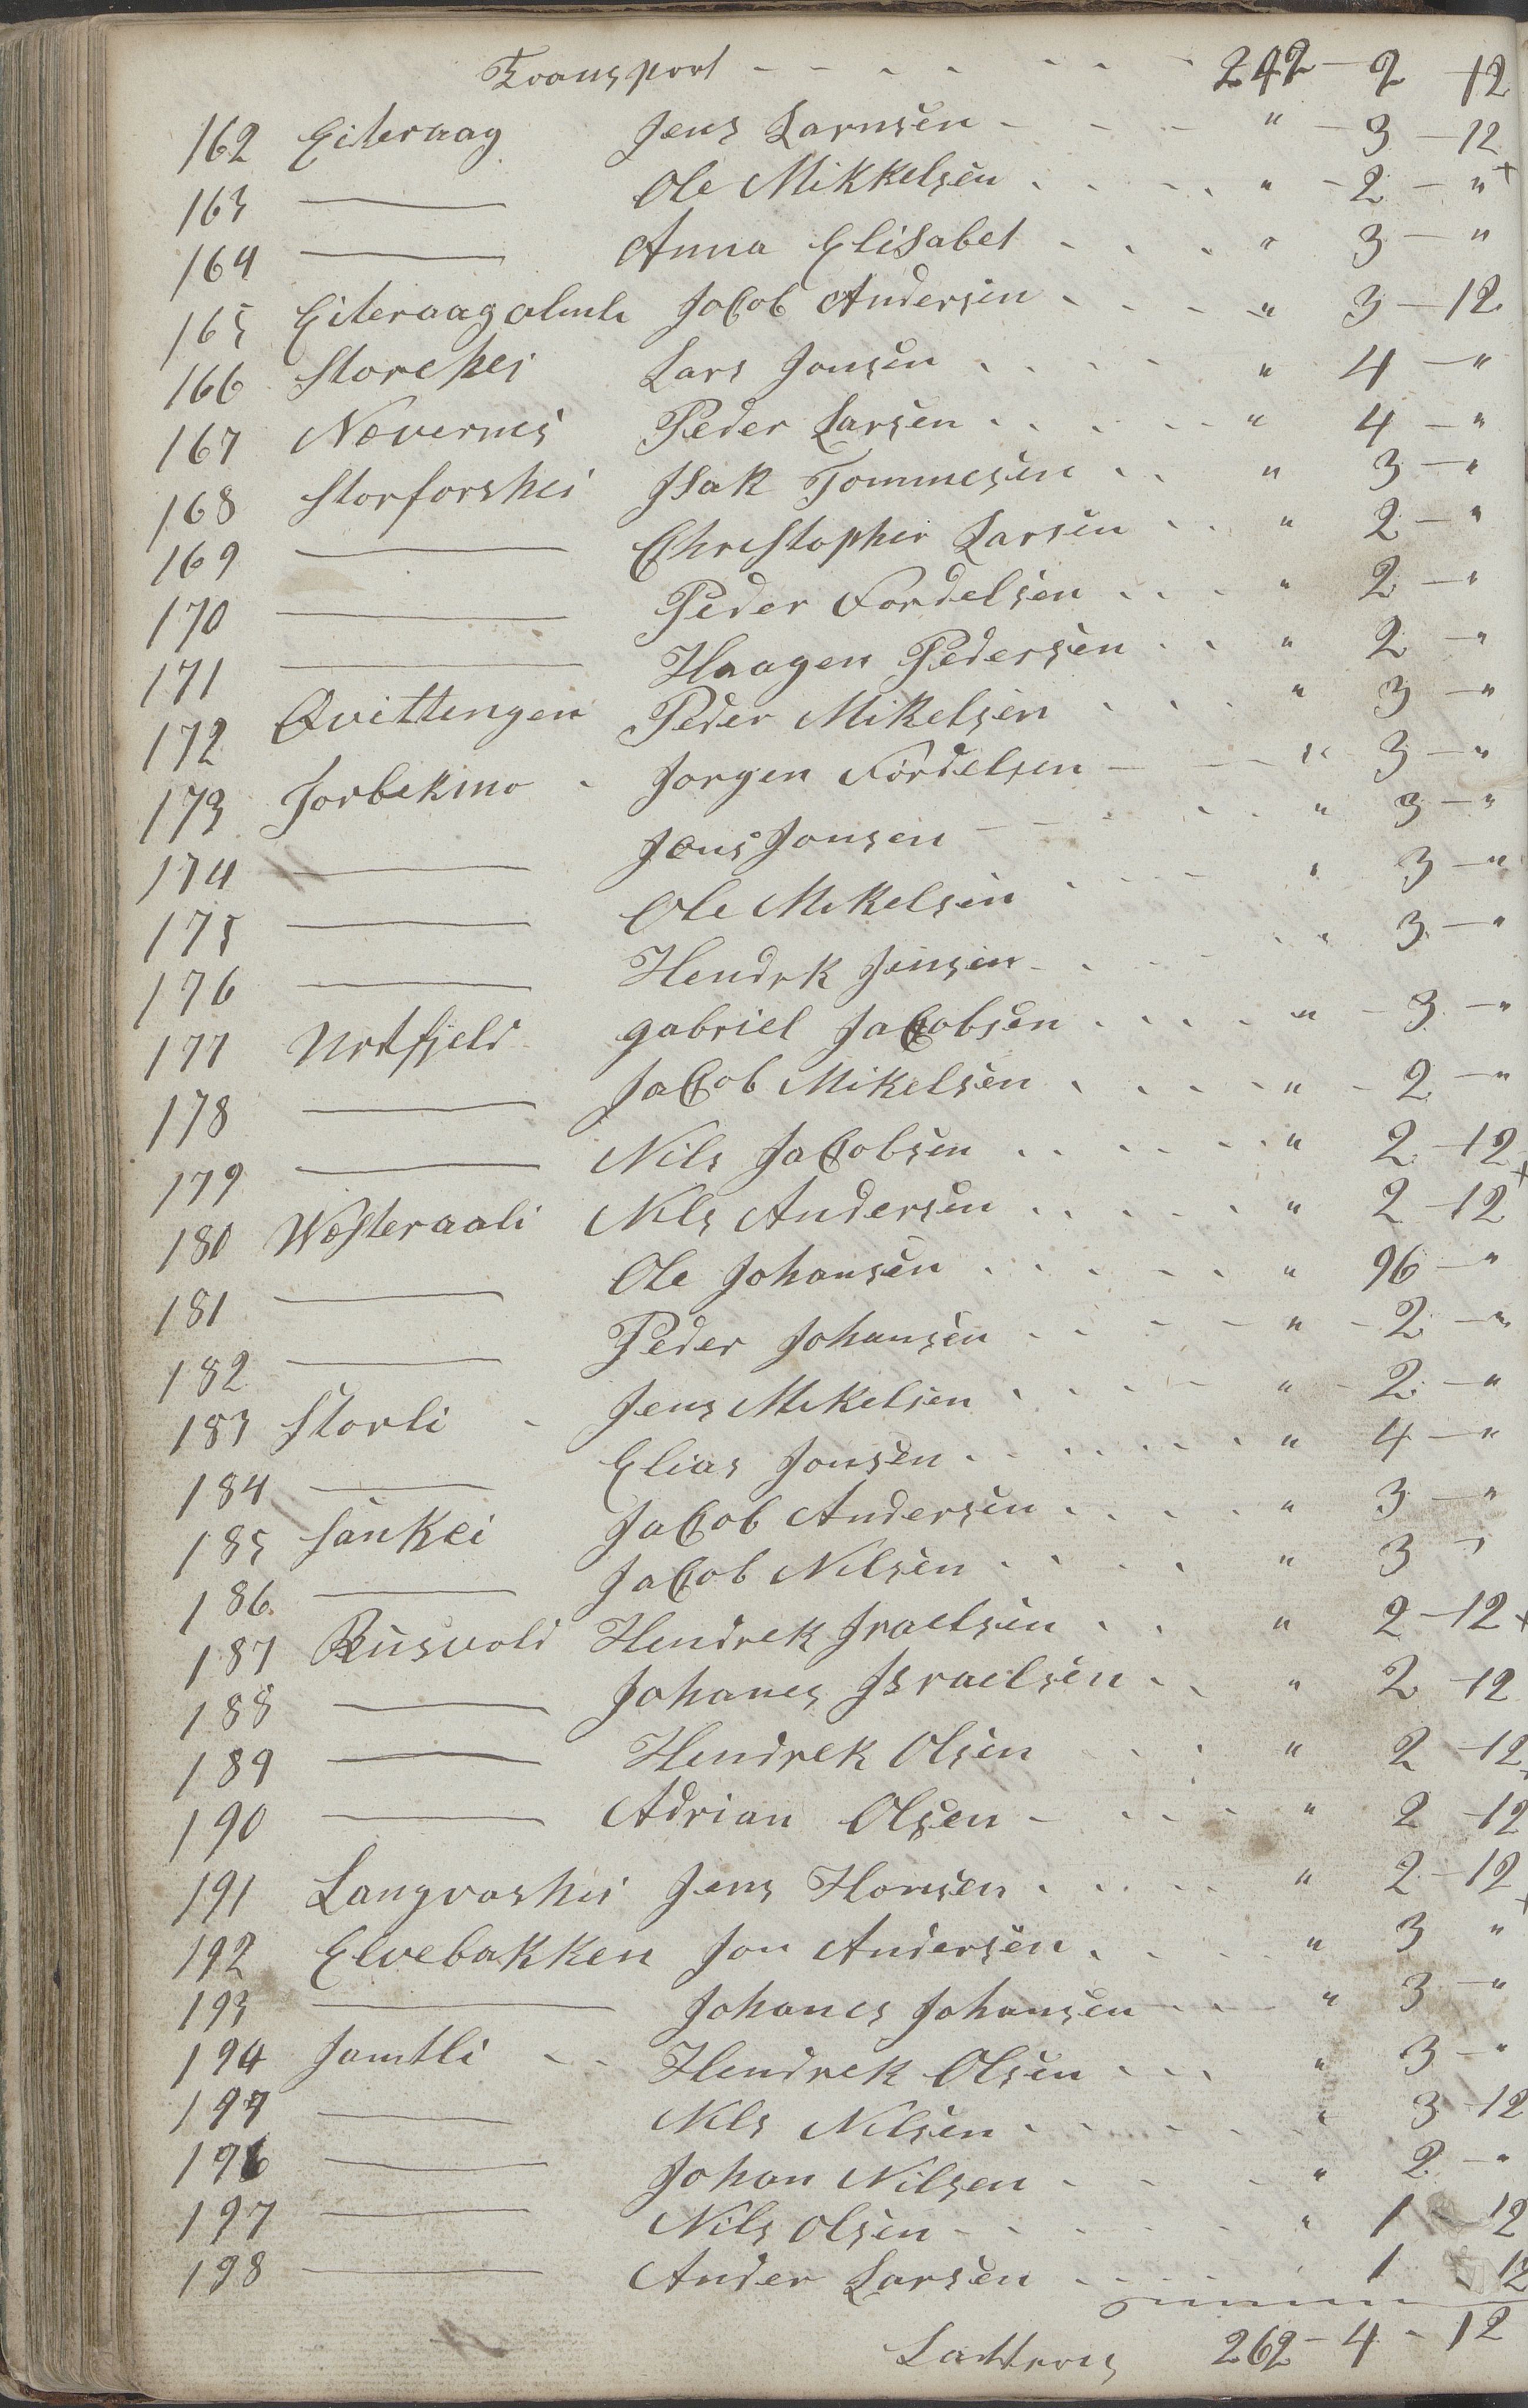 Transport - - - - - - - 242 - 2 - 12
162 Eiteraag Jens Larnsen - - - " - 3 - 12
163 —— Ole Mikkelsen . . - . . " - 2 - " +
164 —— Anna Elisabet . . . " 3 - "
165 Eiteraag almh Jacob Andersen . . . . " 3 - 12
166 Storehei Lars Jonsen . . . . " 4 - "
167 Nævernes Peder Larsen . . . . . " 4 - "
168 Storforshei Isak Tommesen . . " 3 - "
169 —— Christopher Larsen . . " 2 - "
170 —— Peder Fordelsen . . . " 2 - "
171 —— Haagen Pedersen . . " 2 - "
172 Qvittengen Peder Mikelsen . . . " 3 - "
173 Jorbekmo - Jorgen Fordelsen - - " 3 - "
174 —— Jens Jonsen - - - . . " 3 - "
175 —— Ole Mikelsen . . . . " 3 - "
176 —— Hendrk Jensen - . . . . " 3 - "
177 Urtfjeld gabriel Jacobsen . . . . " - 3 - "
178 —— Jacob Mikelsen . . . . " - 2 - "
179 —— Nils Jacobsen . . . . . " 2 - 12 +
180 Westeraali Nils Andersen . . . . . " 2 - 12
181 —— Ole Johansen . . . . . " 96 - "
182 —— Peder Johansen . . . . " - 2 - "
183 Storli - Jens Mikelsen . . . . " - 2 - "
184 —— Elias Jonsen . . . . . . " 4 - "
185 Sankei Jacob Andersen . . . . " 3 - "
186 —— Jacob Nilsen . . . . " 3 - "
187 Rusvold Hendrek Iraelsen . . " 2 - 12 +
188 —— Johanes Israelsen . . " 2 - 12
189 —— Hendrek Olsen . . . " 2 - 12 +
190 —— Adrian Olsen - . . . " 2 - 12
191 Langvashei Jens Hansen . . . . . " 2 - 12 +
192 Elvebakken Jon Andersen . . . " 3 "
193 —— Johanes Johansen - - - " 3 - "
194 Jamtli - - Hendrek Olsen . . . " 3 - "
199 —— Nils Nilsen . . . . . " 3 - 12
196 —— Johan Nilsen . . . . " 2 - "
197 —— Nils Olsen - . . . . " 1 - 12
198 —— Ander Larsen - . . . . 1 - 12
Lattrus 262 - 4 - 12